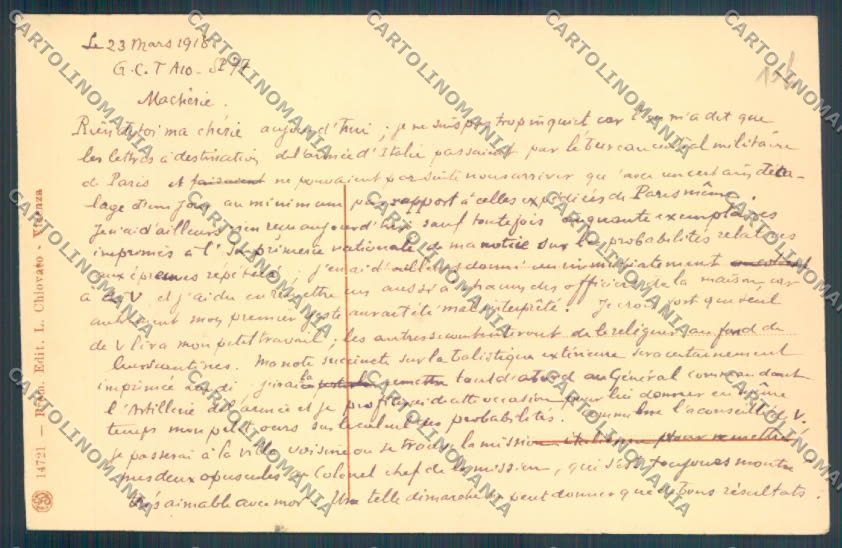 Le 23 Mars 1918
G.C.T A10 - SP 97
Ma chérie.
Rien de toi ma chérie aujourd'hui ; je ne suis pas trop inquiet car l'on m'a dit que
les lettres à destination de l'armée d'Italie passaient par le bureau central militaire
de Paris et faisaient ne pouvaient par suite nous arriver qu'avec un certain déca-
lage d'un jour au minimum par rapport à celles expédiées de Paris même.
Je n'ai d'ailleurs rien reçu aujourd'hui sauf toutefois cinquante exemplaires
imprimés à l'Imprimerie nationale de ma notice sur les probabilités relatives
aux épreuves répétées ; j'en ai d'ailleurs donné un immédiatement
à de V. et j'ai du en remettre un aussi à chacun des officiers de la maison, car
autrement mon premier geste aurait été mal interprété. Je crois fort que seul
de V lira mon petit travail ; les autres se contenteront de le reléguer au fond de
leurs cantines. Ma note succincte sur la balistique extérieure sera certainement
imprimée lundi j'irai la porter remettre tout d'abord au Général commandant
l'Artillerie de l'armée et je profiterai de cette occasion pour lui donner en même
temps mon petit cours sur le calcul des probabilités. Comme me l'a conseillé de V.
je passerai à la villa voisine où se trouve la mission remettre
mes deux opuscules au Colonel chef de la mission, qui s'est toujours montré
très aimable avec moi. Une telle démarche ne peut donner que de bons résultats.
14721 — Rep. Edit. L. Chiovato - Vicenza
CARTOLINOMANIA